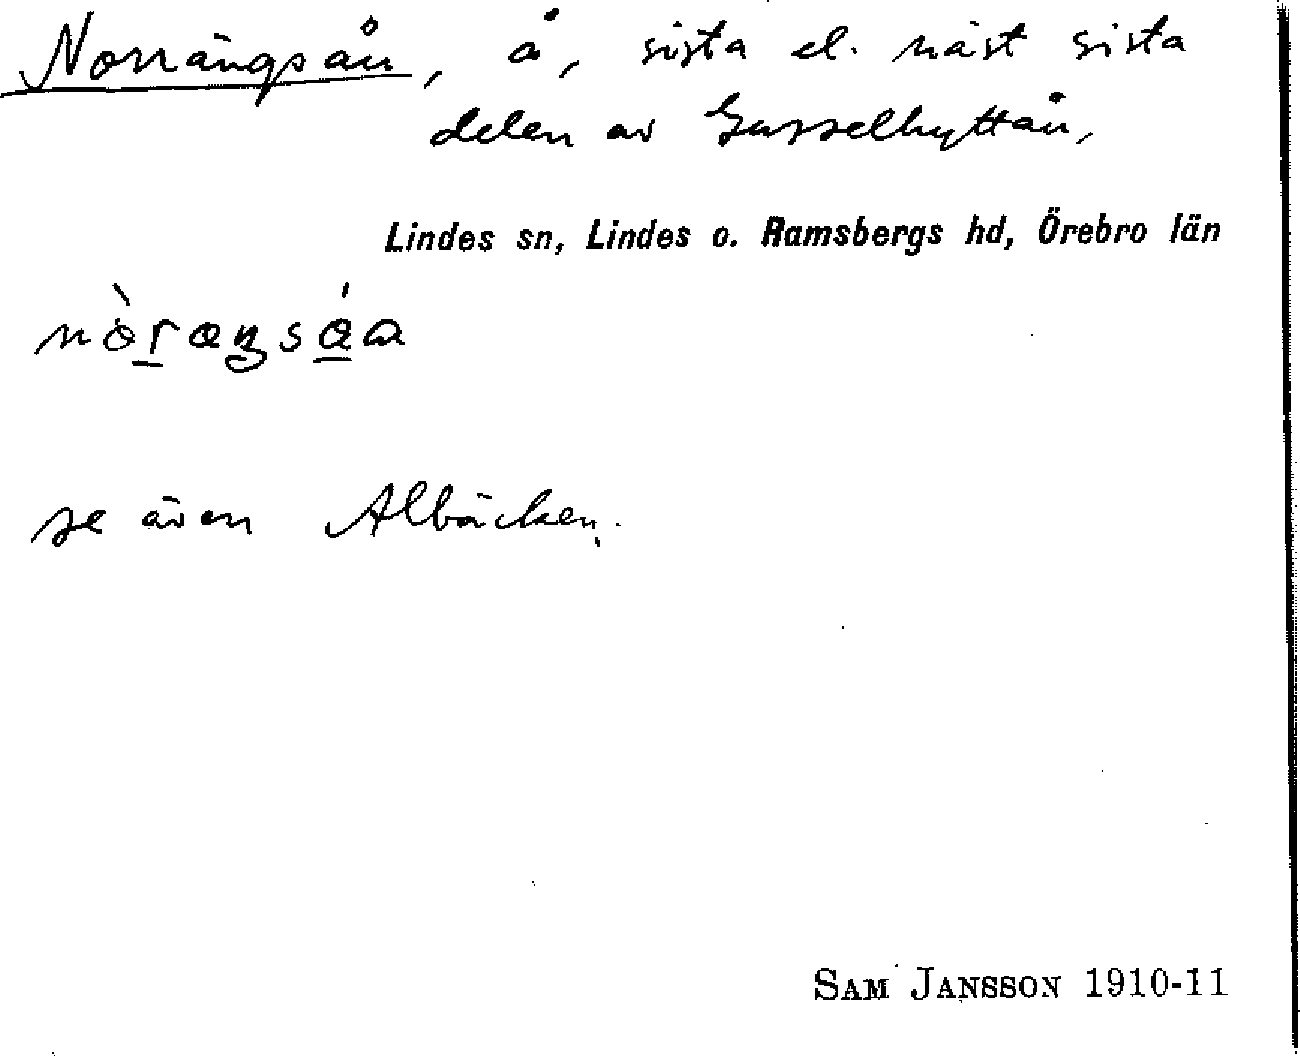 Norrängsån, å, sista el. näst sista
delen av Gusselhyttån,
Lindes sn, Lindes o. Ramsbergs hd, Örebro län
se även Albäcken.
SAM JANSSON 1910-11